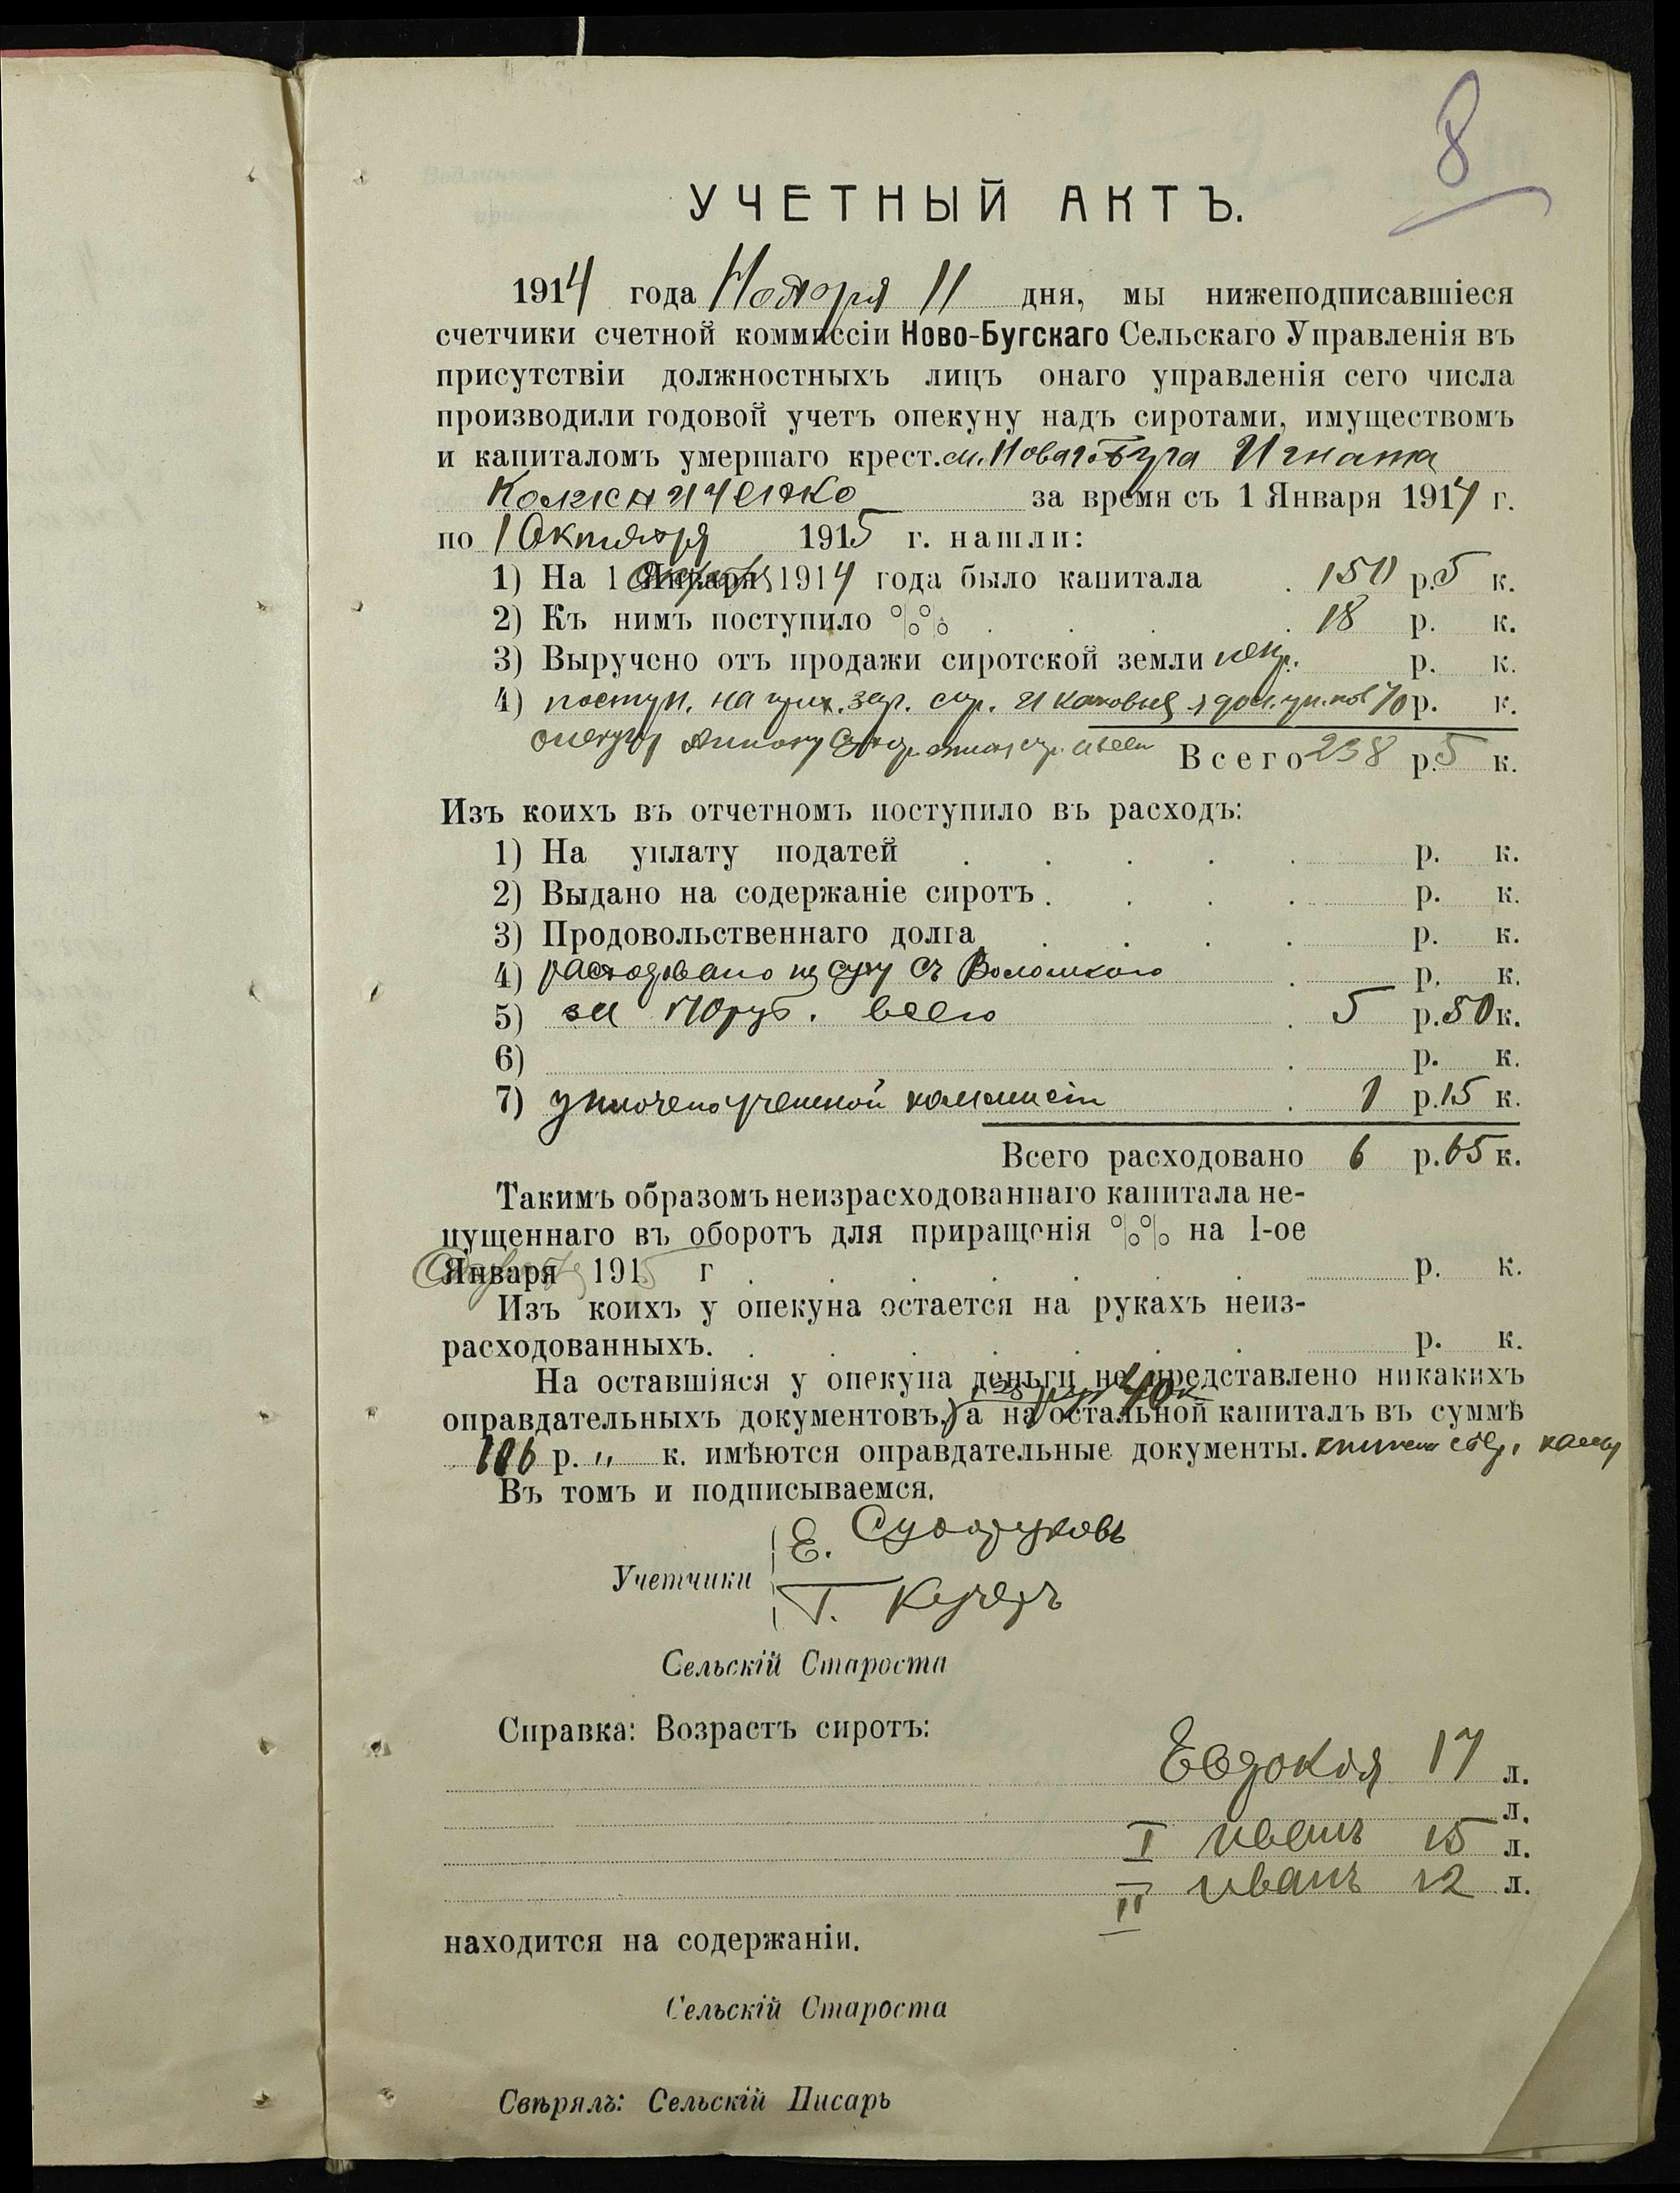 8
УЧЕТНЫЙ АКТЪ.
1914 года Ноября 11 дня, мы нижеподписавшіеся
счетчики счетной коммиссіи Ново-Бугскаго Сельскаго Управленія въ
присутствіи должностныхъ лицъ онаго управленія сего числа
производили годовой учетъ опекуну надъ сиротами, имуществомъ
и капиталомъ умершаго крест. м. Новаго Буга Игната
за время съ 1 Января 1914 г.
по 1 Октября 1915 г. нашли:
1) На 1 Января 1914 года было капитала 150 р. 5 к.
2) Къ нимъ поступило %% 18 р. к.
3) Выручено отъ продажи сиротской земли р. к.
4) поступ. на р. к.
Всего 238 р. 5 к.
Изъ коихъ въ отчетномъ поступило въ расходъ:
1) На уплату податей р. к.
2) Выдано на содержаніе сиротъ р. к.
3) Продовольственнаго долга р. к.
4) расходовано съ р. к.
5) за 170 руб. всего 5 р. 50 к.
6) р. к.
7) уплочено учетной коммисіи 1 р. 15 к.
Всего расходовано 6 р. 65 к.
Такимъ образомъ неизрасходованнаго капитала не-
пущеннаго въ оборотъ для приращенія %% на 1-ое
Января 1915 г р. к.
Изъ коихъ у опекуна остается на рукахъ неиз-
расходованныхъ. р. к.
На оставшіяся у опекуна деньги не представлено никакихъ
оправдательныхъ документовъ, а на остальной капиталъ въ суммѣ
р. " к. имѣются оправдательные документы.
Въ томъ и подписываемся.
Учетчики
Е. Сундуковъ
Т. Кучеръ
Сельскій Староста
Справка: Возрастъ сиротъ:
Евдокія 17 л.
л.
I Иванъ 15 л.
II Иванъ 12 л.
находится на содержаніи.
Сельскій Староста
Свѣрялъ: Сельскій Писарь